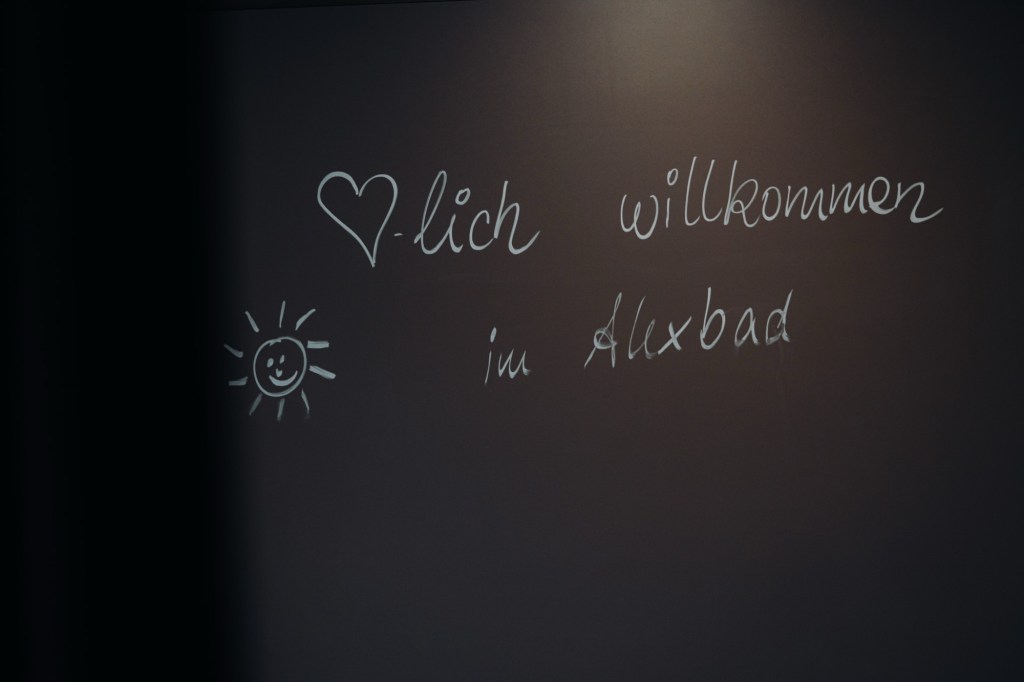 ♡-lich willkommen
im Alexbad